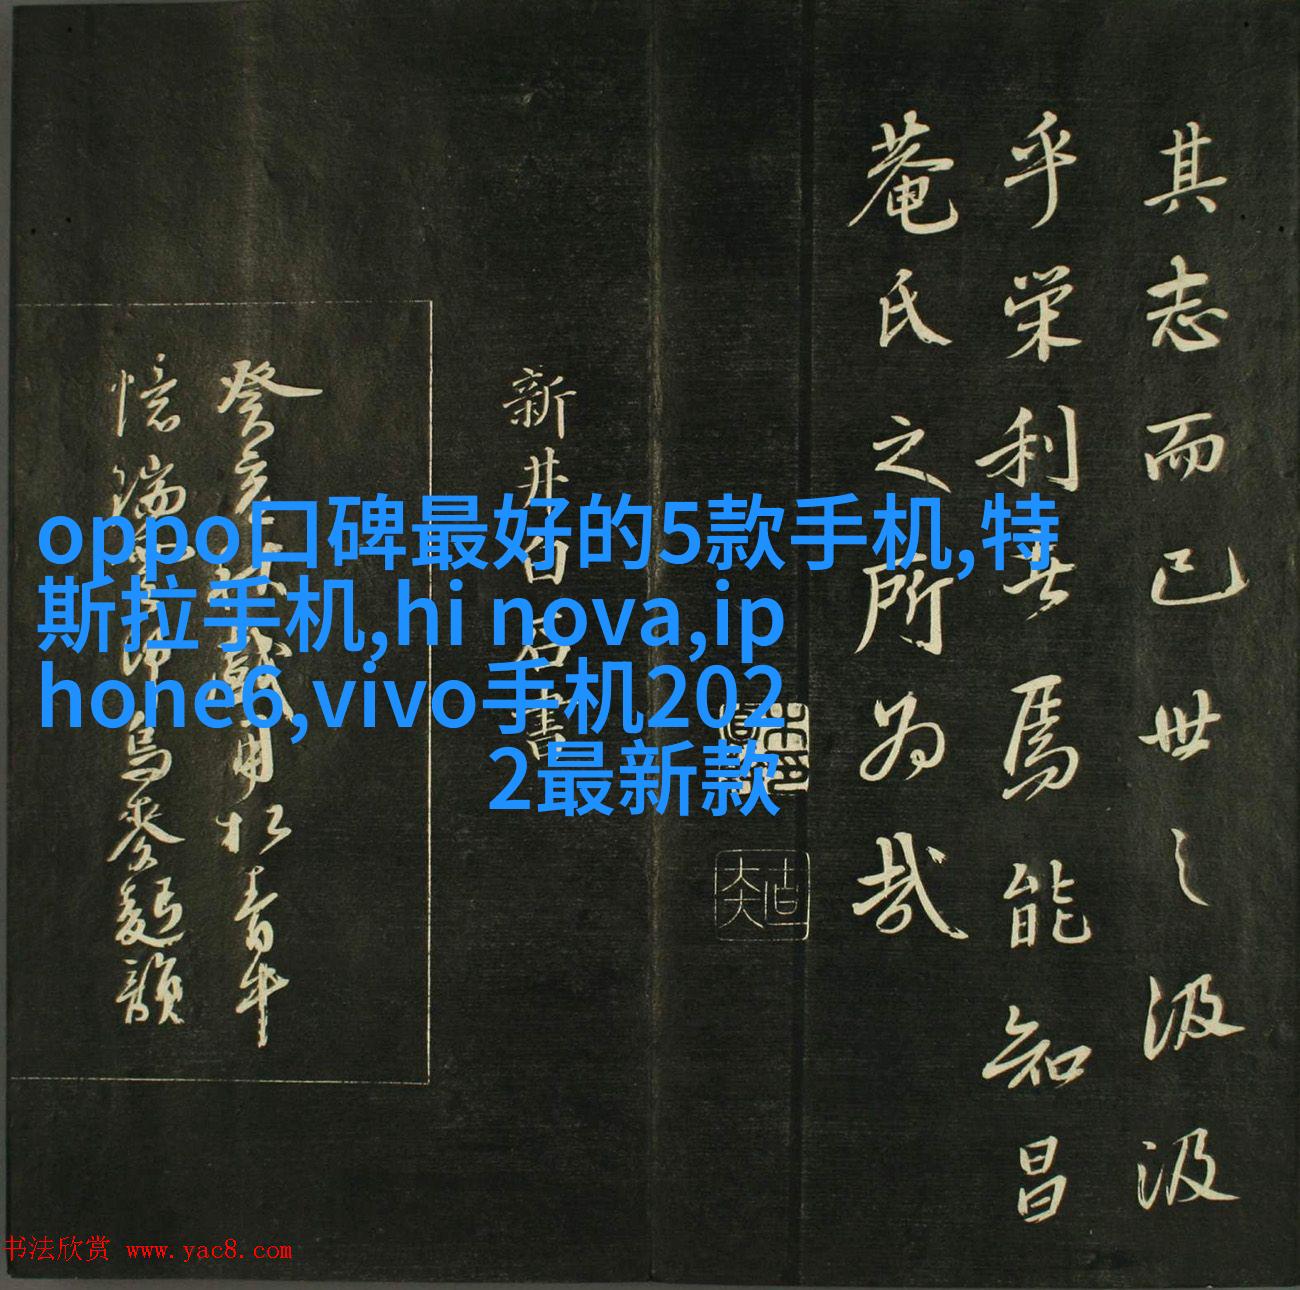 其志而已世之汲汲
乎栄利者焉能知昌
菴氏之所为哉
新井白石書
癸亥 戯用松青年
憶瑞 烏麥麵韻
oppo口碑最好的5款手机,特
斯拉手机,hi nova,ip
hone6,vivo手机202
2最新款
书法欣赏 www.yac8.com